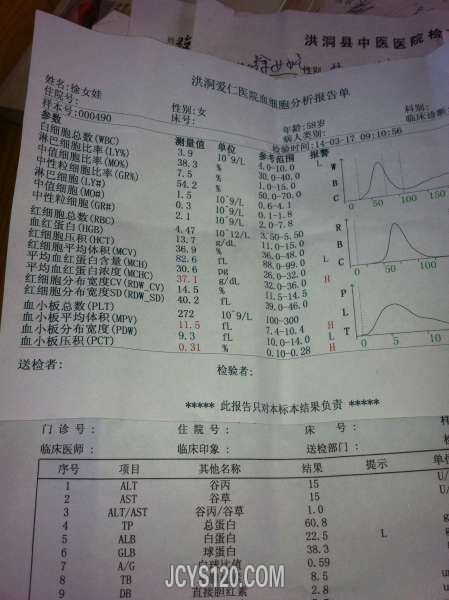 洪洞县中医医院检
洪洞爱仁医院血细胞分析报告单
姓名:徐女娃 性别:女 年龄:58岁 科别:
住院号: 床号: 病人类别: 临床诊断
样本号:000490 检验时间:14-03-17 09:10:56
参数 测量值 单位 参考范围 报警
白细胞总数(WBC) 3.9 10^9/L 4.0-10.0 L
淋巴细胞比率(LY%) 38.3 % 30.0-40.0
中值细胞比率(MO%) 7.5 % 1.0-15.0
中性粒细胞比率(GR%) 54.2 % 50.0-70.0
淋巴细胞(LY#) 1.5 10^9/L 0.6-4.1
中值细胞(MO#) 0.3 10^9/L 0.1-1.8
中性粒细胞(GR#) 2.1 10^9/L 2.0-7.8
红细胞总数(RBC) 4.47 10^12/L 3.50-5.50
血红蛋白(HGB) 13.7 g/dL 11.0-15.0
红细胞压积(HCT) 36.9 % 36.0-48.0
红细胞平均体积(MCV) 82.6 fL 88.0-99.0 L
平均血红蛋白含量(MCH) 30.6 pg 26.0-32.0
平均血红蛋白浓度(MCHC) 37.1 g/dL 32.0-36.0 H
红细胞分布宽度CV(RDW_CV) 14.5 % 11.5-14.5
红细胞分布宽度SD(RDW_SD) 40.2 fL 39.0-46.0
血小板总数(PLT) 272 10^9/L 100-300
血小板平均体积(MPV) 11.5 fL 7.4-10.4 H
血小板分布宽度(PDW) 9.3 fL 10.0-14.0 L
血小板压积(PCT) 0.31 % 0.10-0.28 H
WBC
RBC
PLT
送检者: 检验者:
***** 此报告只对本标本结果负责 *****
门诊号: 住院号: 床号:
临床医师: 临床印象: 送检部门:
序号 项目 其他名称 结果 提示 单
1 ALT 谷丙 15 U/
2 AST 谷草 15 U/
3 ALT/AST 谷丙/谷草 1.0
4 TP 总蛋白 60.8
5 ALB 白蛋白 22.5 L
6 GLB 球蛋白 38.3
7 A/G 白球比值 0.59
8 TB 8.5
9 DB 直接胆红素 2.8
JCYS120.COM